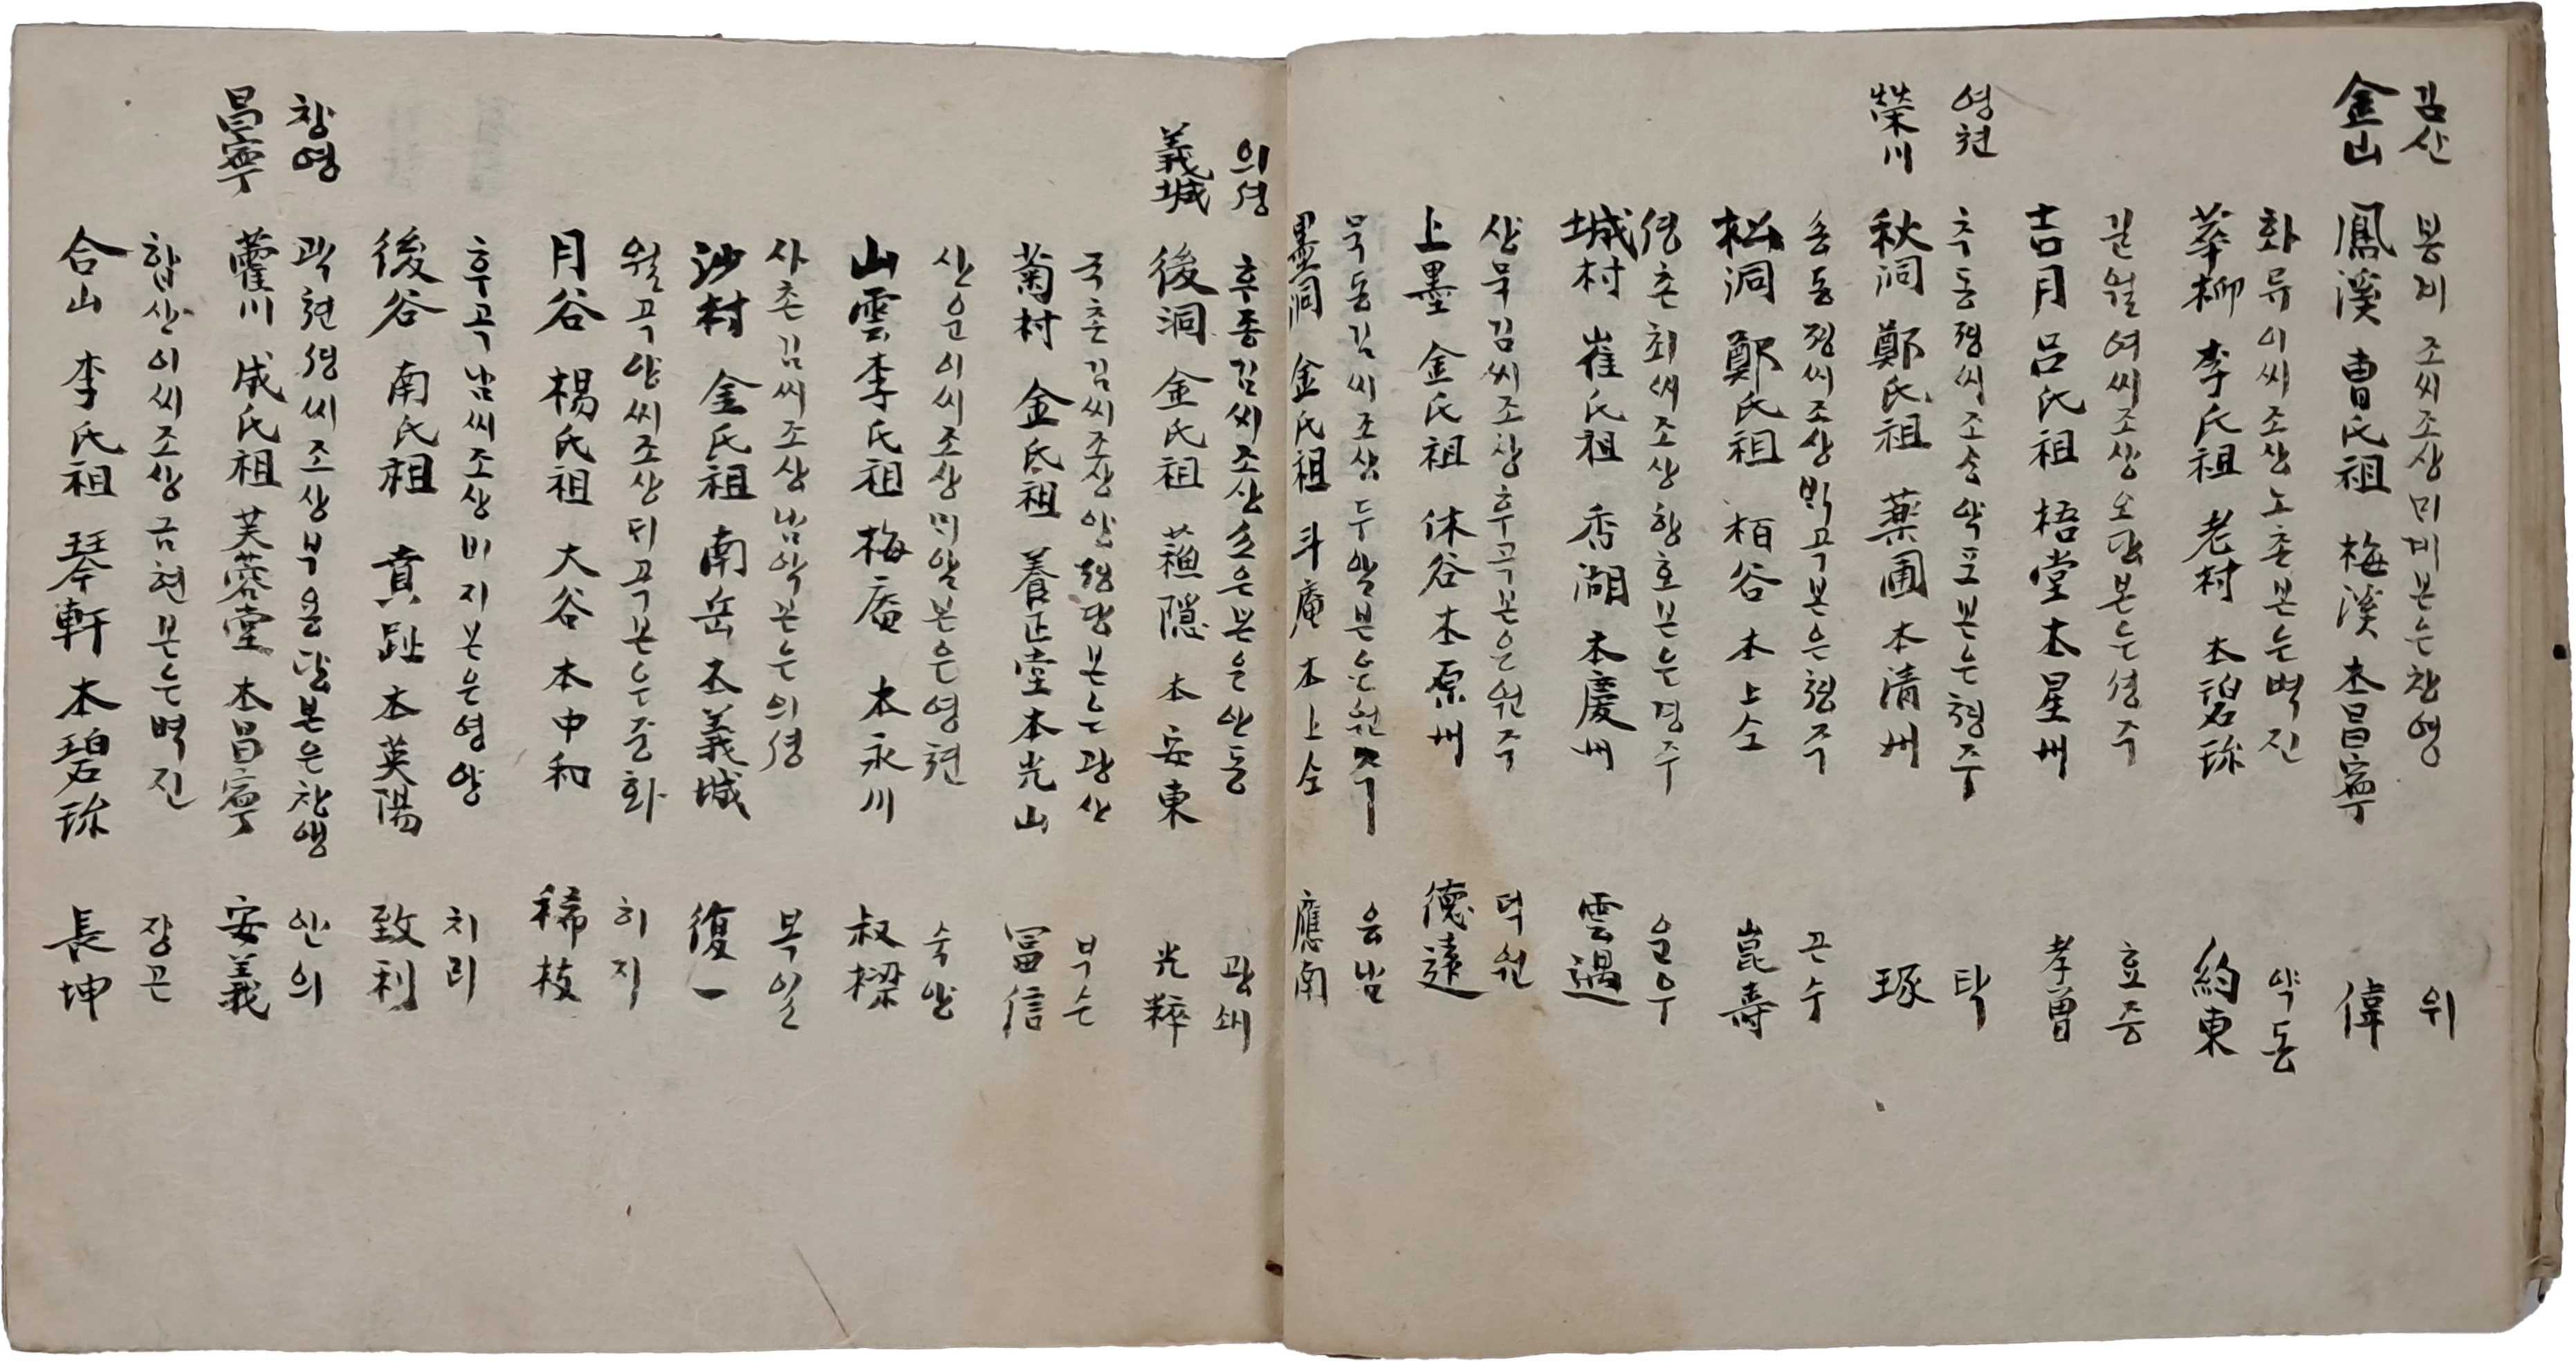 김산 봉계 조씨조상 미계 본는 창영 위
金山 鳳溪 曺氏祖 梅溪 本昌寧 偉
화류 이씨조상 노촌 본는 벽진 약동
莘柳 李氏祖 老村 本碧珎 約東
길월 여씨조상 오당 본는 셩주 효증
吉月 呂氏祖 梧堂 本星州 孝曽
영쳔 추동 졍씨조송 약포 본은 쳥주 탁
榮川 秋洞 鄭氏祖 薬圃 本清州 琢
송동 졍씨조상 ᄇᆡᆨ곡 본은 쳥주 곤수
松洞 鄭氏祖 栢谷 本上仝 崑壽
셩촌 최씨조상 향호 본은 경주 운우
城村 崔氏祖 香湖 本慶州 雲遇
상묵 김씨조상 후곡 본은 원주 덕원
上墨 金氏祖 休谷 本原州 德遠
묵동 김씨조상 두알 본은 원주 응남
墨洞 金氏祖 斗庵 本上仝 應南
의셩 후종 김씨조상 소은 본은 안동 광쇄
義城 後洞 金氏祖 蘓隠 本安東 光粹
국촌 김씨조상 양졍당 본는 광산 부슨
菊村 金氏祖 養正堂 本光山 冨信
산운 이씨조상 ᄆᆡ알 본은 영쳔 숙양
山雲 李氏祖 梅庵 本永川 叔樑
사촌 김씨조상 남악 본는 의셩 복일
沙村 金氏祖 南岳 本義城 復一
월곡 양씨조상 ᄃᆡ곡 본은 중화 히지
月谷 楊氏祖 大谷 本中和 稀枝
후곡 남씨조상 비지 본은 영양 치리
後谷 南氏祖 賁趾 本英陽 致利
창영 곽쳔 셩씨조상 부용당 본은 창영 안의
昌寧 藿川 成氏祖 芙蓉堂 本昌寧 安義
합산 이씨조상 금현 본는 벽진 장곤
合山 李氏祖 琴軒 本碧珎 長坤